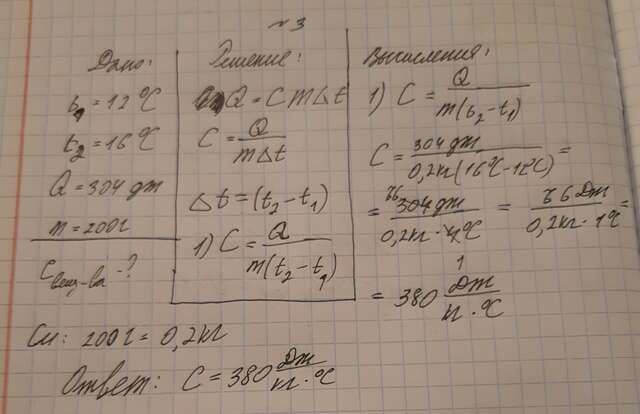 №3
Дано:
t₁ = 12 °C
t₂ = 16 °C
Q = 304 дж
m = 200 г
C вещ-ва - ?
Си: 200 г = 0,2 кг
Решение:
Q = C m Δt
C = Q / mΔt
Δt = (t₂ - t₁)
1) C = Q / m(t₂ - t₁)
Вычисления:
1) C = Q / m(t₂ - t₁)
C = 304 дж / 0,2 кг (16°C - 12°C) =
= 76 304 дж / 0,2 кг · 4 °C 1 = 76 Дж / 0,2 кг · 1°C =
= 380 Дж / кг · °C
Ответ: C = 380 Дж / кг · °C